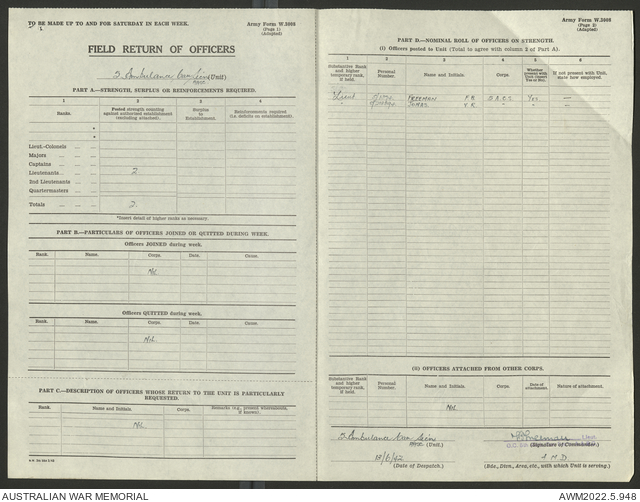 TO BE MADE UP TO AND FOR SATURDAY IN EACH WEEK.
Army Form W.3008
(Page 1)
(Adapted)
FIELD RETURN OF OFFICERS
2 Ambulance (Unit)
PART A—STRENGTH, SURPLUS OR REINFORCEMENTS REQUIRED.
1 2 3 4
Ranks. Posted strength counting against authorized establishment (excluding attached). Surplus to Establishment. Reinforcements required (i.e. deficits on establishment).
*
*
Lieut.-Colonels
Majors
Captains
Lieutenants 2
2nd Lieutenants
Quartermasters
Totals 2
*Insert detail of higher ranks as necessary.
PART B.—PARTICULARS OF OFFICERS JOINED OR QUITTED DURING WEEK.
Officers JOINED during week.
Rank. Name. Corps. Date. Cause.
Nil
Officers QUITTED during week.
Rank. Name. Corps. Date. Cause.
Nil
PART C.—DESCRIPTION OF OFFICERS WHOSE RETURN TO THE UNIT IS PARTICULARLY
REQUESTED.
Rank. Name and Initials. Corps. Remarks (e.g., present whereabouts, if known).
Nil
Army Form W.3008
(Page 2)
(Adapted)
PART D.—NOMINAL ROLL OF OFFICERS ON STRENGTH.
(i) Officers posted to Unit (Total to agree with column 2 of Part A).
1 2 3 4 5 6
Substantive Rank and higher temporary rank, if held. Personal Number. Name and Initials. Corps. Whether present with Unit (insert Yes or No). If not present with Unit, state how employed.
Lieut FREEMAN Yes —
" JONES " " —
(ii) OFFICERS ATTACHED FROM OTHER CORPS.
Substantive Rank and higher temporary rank, if held. Personal Number. Name and Initials. Corps. Date of Attachment. Nature of attachment.
Nil
2 Ambulance (Unit.)
(Signature of Commander.)
13/6/42
(Date of Despatch.)
(Bde., Divn., Area, etc., with which Unit is serving.)
AUSTRALIAN WAR MEMORIAL
AWM2022.5.948